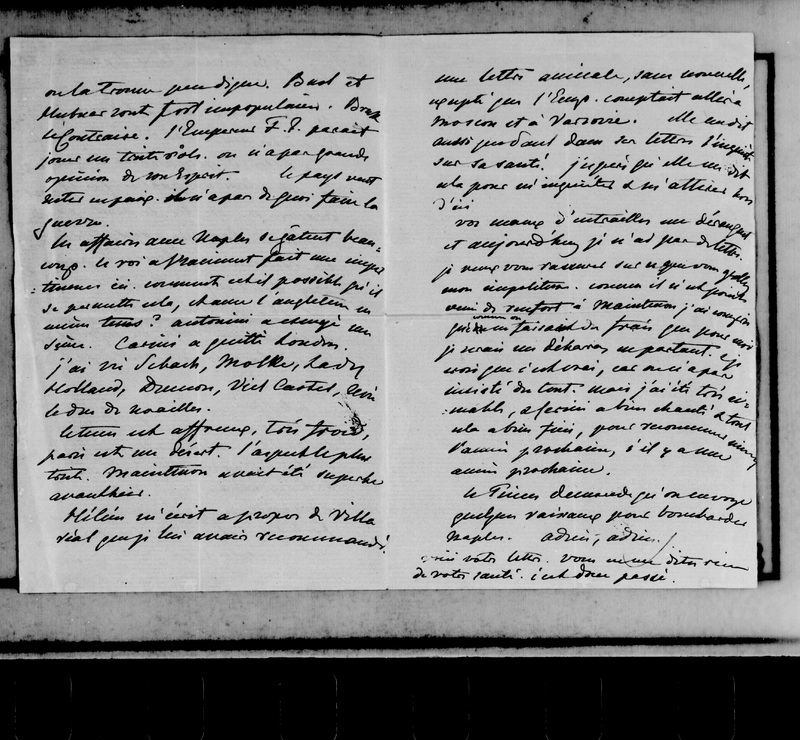 on la trouve peu digne. Buol et
Hubner sont fort impopulaires. Bruck
le contraire. l'Empereur F. J. parait
jouer un triste rôle. on n'a pas grande
opinion de son esprit. le pays veut
rester en paix. il n'a pas de quoi faire la
guerre.
les affaires avec Naples se gâtent beau=
coup. le roi a vraiment fait une imper
=tinence ici. comment est il possible qu'il
se permette cela, et avec l'angleterre en
même tems? antonini a changé un
Carini a quitté Londres.
j'ai vu Schach, Molke, Lady
Holland, Dumon, Viel Castel,
le duc de Noailles.
le tems est affreux, très froid,
paris est un désert. l'aspect le plus
Maintenon avait été superbe
avanthier.
Hélène m'écrit apropos de Villa
réal que je lui avais recommandé
une lettre amicale, sans nouvelle,
excepté que l'Emp. comptait aller à
Moscou et à Varsovie. elle me dit
aussi que dans ses lettres s'inquiète
sur sa santé. j'espère qu'elle me dit
cela pour m'inquiéter & m'attirer hors
d'ici
vos maux d'entrailles me dérangent
et aujourd'hui je n'ai pas de lettre.
je veux vous rassurer sur ce que vous appellez
mon impolitesse. comme il est
venu de renfort à Maintenon j'ai compris
que comme on ne faisait de frais que pour moi
je serais un débarras en partant. & je
crois que c'est vrai, car on n'a pas
insisté du tout. mais j'ai été très ai=
=mable, a fini a bien chanté & tout
cela a bien fini, pour recommencer
l'année prochaine, s'il y a une
année prochaine.
le Times demande qu'on envoye
quelques vaisseaux pour bombarder
Naples. adieu, adieu.
voici votre lettre. vous ne me dites rien
de votre santé. c'est donc passé.